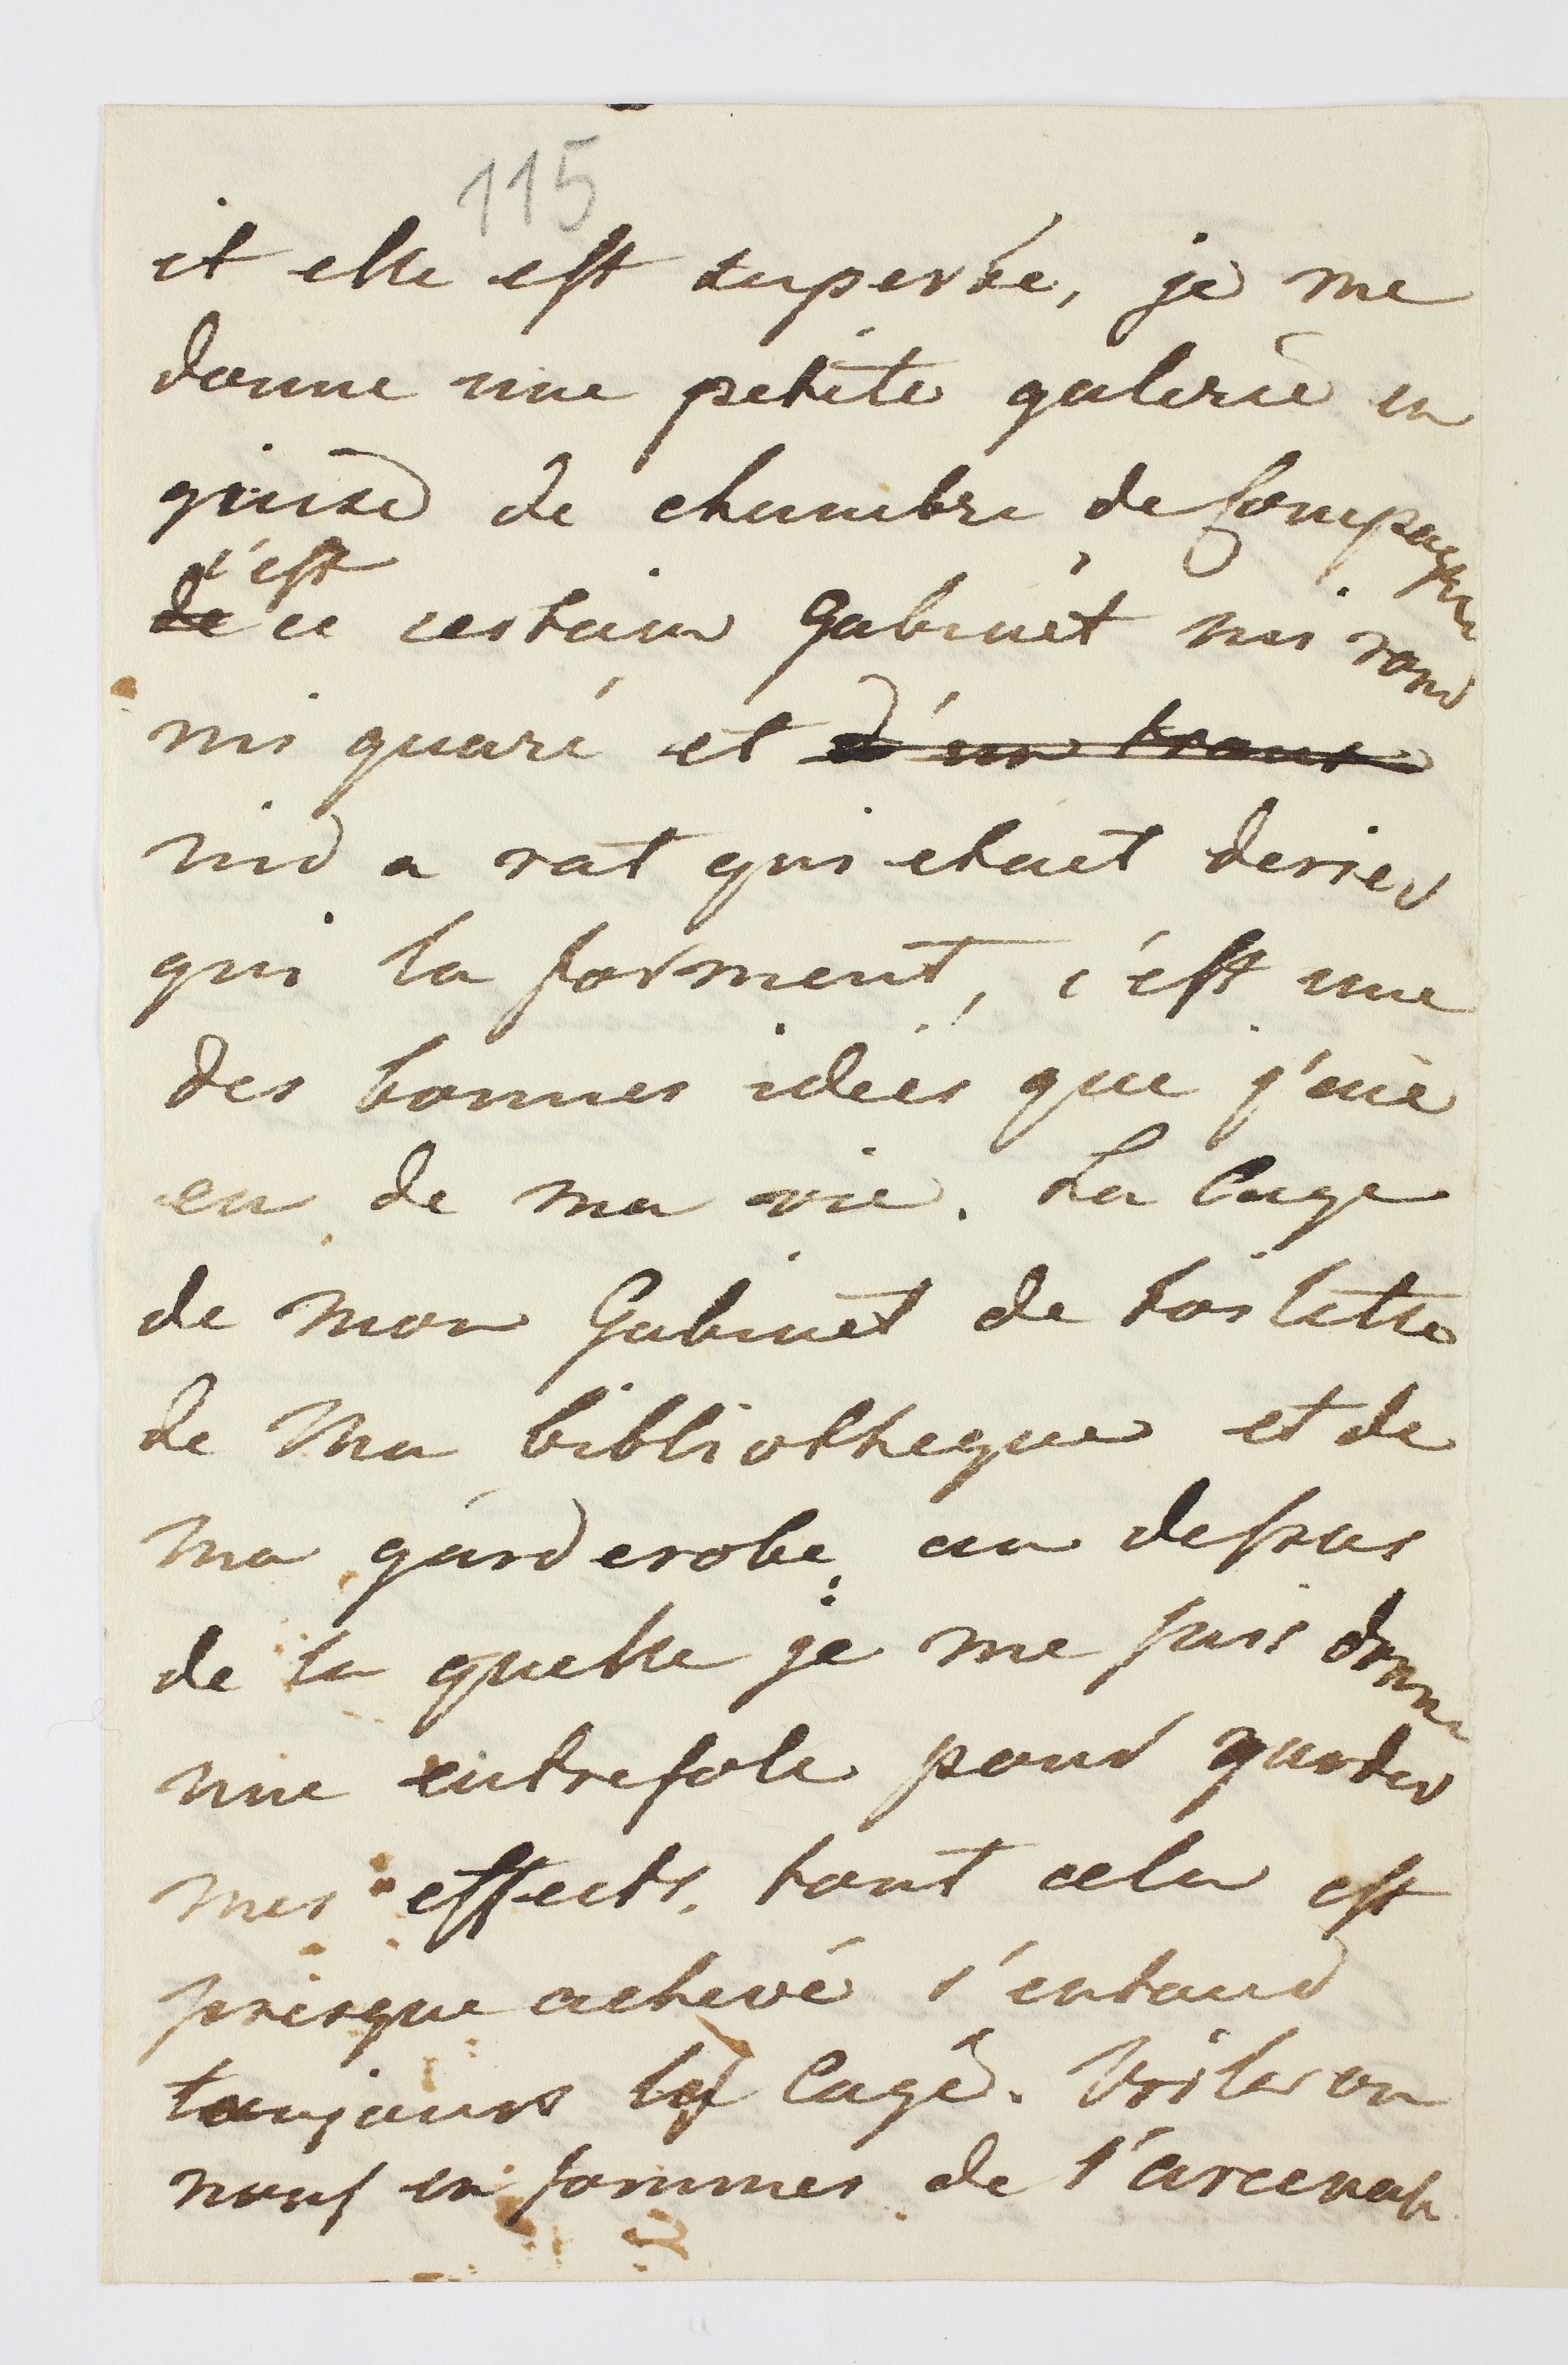 115
et elle est superbe, je me
donne une petite galerie en
guise de chambre de Compagnie
c'est
de ce certain Gabinet ni rond
ni quaré et d'un trans
nid a rat qui etaet derier
qui la forment, c'est une
des bonnes idées que j'aie
eu de ma vie. La Cage
de mon Gabinet de toilette
de Ma bibliotheque et de
ma garderobe, au dessus
de la quelle je me suis donné
une entresole pour garder
mes effects. tout cela est
presque achevé s'entand
toujours la Cage. Voila on
nouf en sommes de l'arcenal